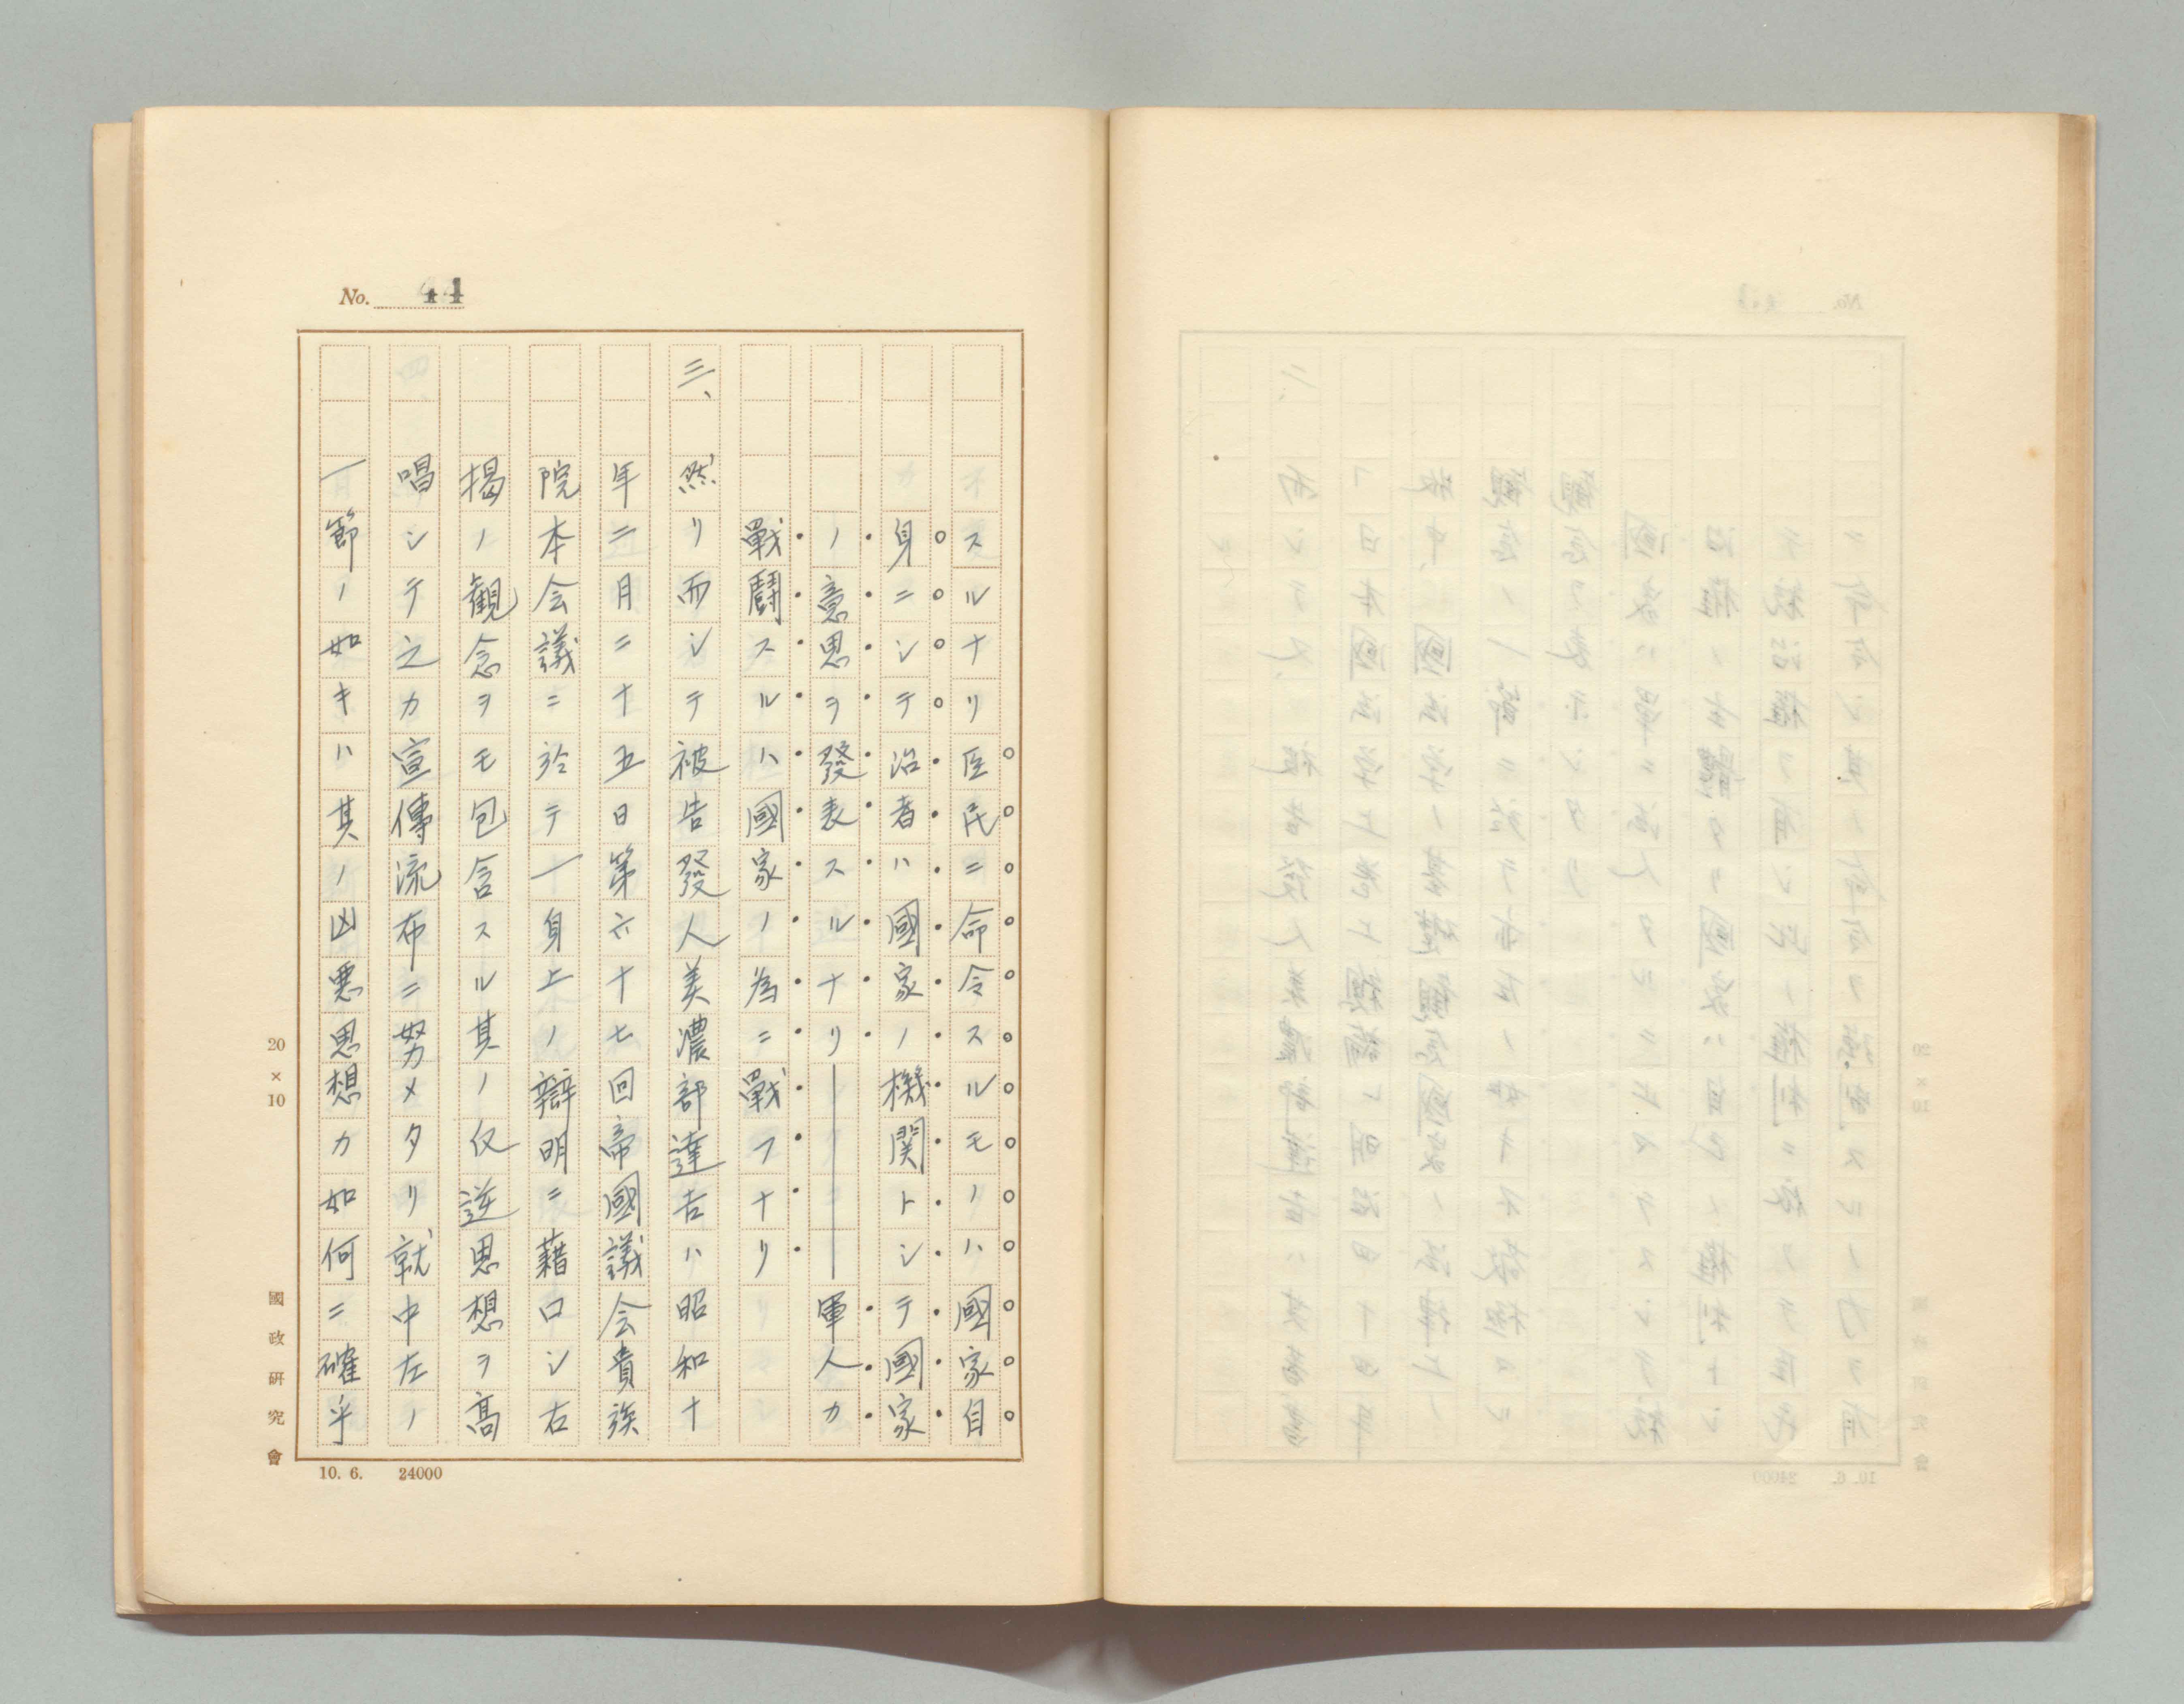 No. 44
スルナリ臣民ニ命令スルモノハ國家自
身ニシテ治者ハ國家ノ機関トシテ國家
ノ意思ヲ發表スルナリ――軍人カ
戰鬪スルハ國家ノ為ニ戰フナリ
三、然リ而シテ被告發人美濃部達吉ハ昭和十
年二月二十五日第六十七回帝國議会貴族
院本会議ニ於テ一身上ノ辯明ニ藉口シ右
掲ノ観念ヲモ包含スル其ノ仅逆思想ヲ高
唱シテ之カ宣傳流布ニ努メタリ就中左ノ
一節ノ如キハ其ノ凶悪思想カ如何ニ確乎
20×10
國政研究會
10. 6. 24000